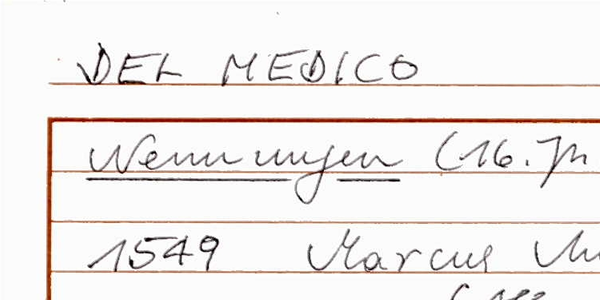 DEL MEDICO
Nennungen (16. Jh
1549 Marcus